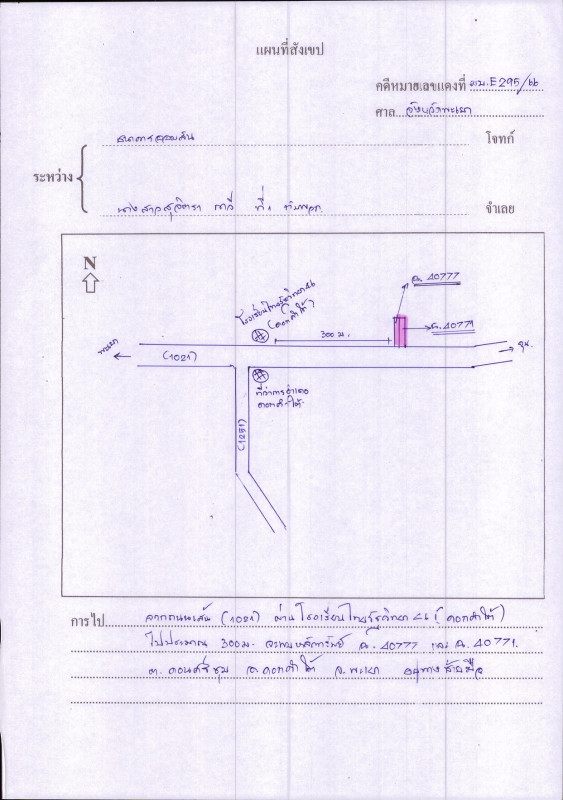 แผนที่สังเขป
คดีหมายเลขแดงที่ ผบ.E295/66
ศาล จังหวัดพะเยา
ธนาคารออมสิน โจทก์
ระหว่าง
นางสาวสุจิตรา ที่ 1 กับพวก จำเลย
N
ฉ. 40777
โรงเรียนไทยรัฐวิทยา 46
(ดอกคำใต้)
300 ม.
ฉ. 40771
พะเยา
(1021)
จุน.
ที่ว่าการอำเภอ
ดอกคำใต้
(1251)
การไป จากถนนเส้น (1021) ผ่านโรงเรียนไทยรัฐวิทยา 46 (ดอกคำใต้)
ไปประมาณ 300 ม. จะพบหลักทรัพย์ ฉ. 40777 และ ฉ. 40771.
ต. ดอนศรีชุม อ. ดอกคำใต้ จ. พะเยา อยู่ทางซ้ายมือ